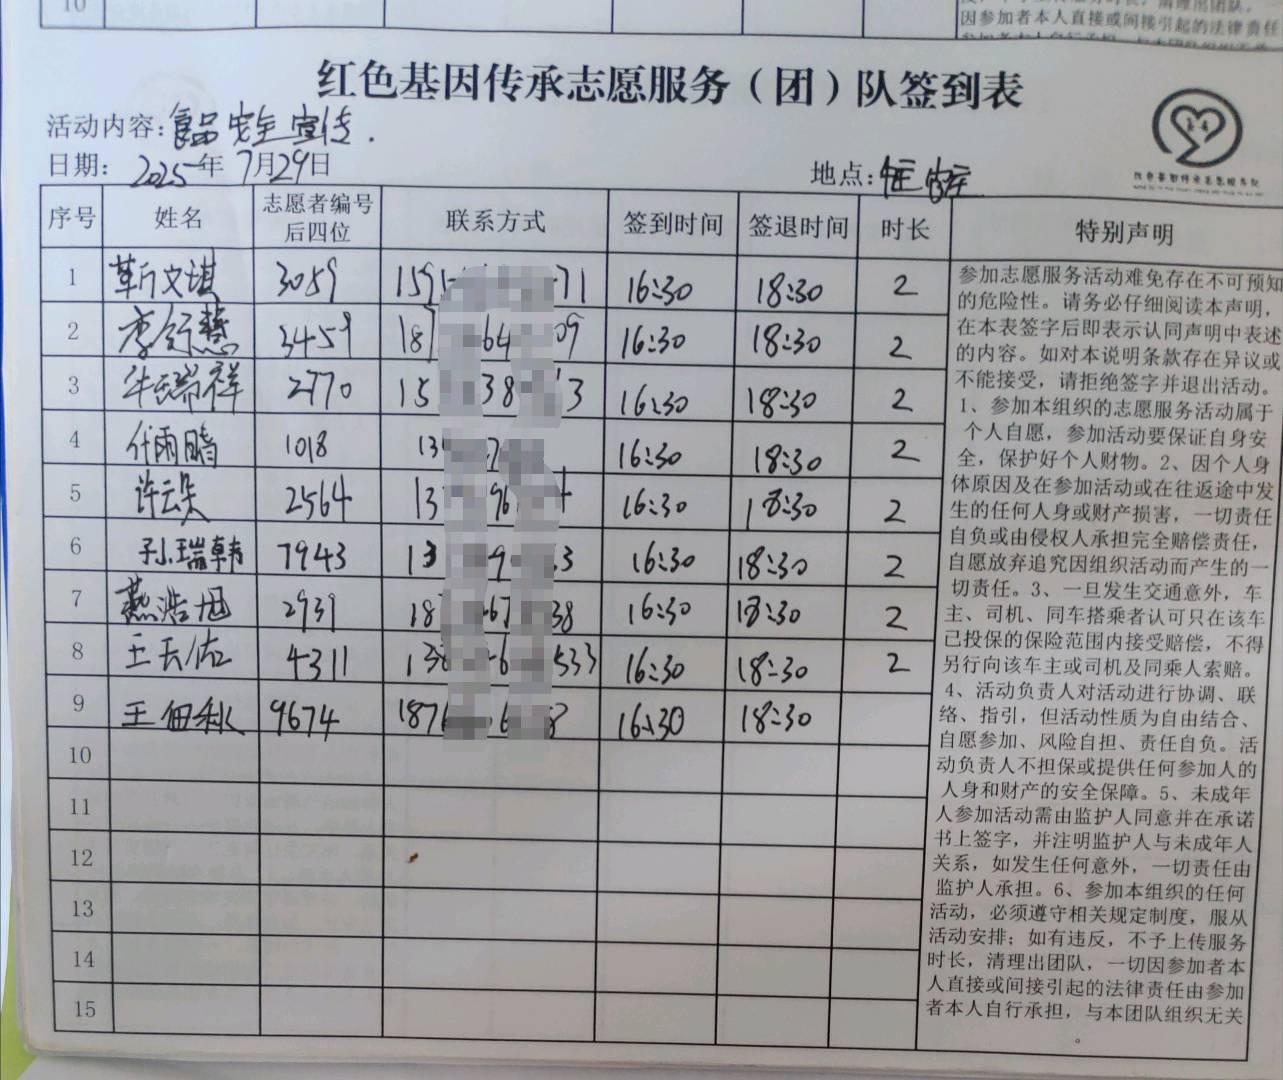 10
因参加者本人直接或间接引起的法律责任
红色基因传承志愿服务（团）队签到表
活动内容：食品安全宣传.
日期： 2025年 7月29日
地点：
序号 姓名 志愿者编号后四位 联系方式 签到时间 签退时间 时长 特别声明
1 靳文琪 3059 159 71 16:30 18:30 2
2 李舒慧 3459 18 64 09 16:30 18:30 2
3 牛瑞祥 2770 15 38 3 16:30 18:30 2
4 付雨晴 1018 13 16:30 18:30 2
5 许云朵 2564 13 96 4 16:30 18:30 2
6 孙瑞韩 7943 13 9 3 16:30 18:30 2
7 燕浩旭 2939 18 67 38 16:30 18:30 2
8 王天佑 4311 138 6 533 16:30 18:30 2
9 王佃秋 9674 187 6 8 16:30 18:30
10
11
12
13
14
15
参加志愿服务活动难免存在不可预知
的危险性。请务必仔细阅读本声明，
在本表签字后即表示认同声明中表述
的内容。如对本说明条款存在异议或
不能接受，请拒绝签字并退出活动。
1、参加本组织的志愿服务活动属于
个人自愿，参加活动要保证自身安
全，保护好个人财物。2、因个人身
体原因及在参加活动或在往返途中发
生的任何人身或财产损害，一切责任
自负或由侵权人承担完全赔偿责任，
自愿放弃追究因组织活动而产生的一
切责任。3、一旦发生交通意外，车
主、司机、同车搭乘者认可只在该车
已投保的保险范围内接受赔偿，不得
另行向该车主或司机及同乘人索赔。
4、活动负责人对活动进行协调、联
络、指引，但活动性质为自由结合、
自愿参加、风险自担、责任自负。活
动负责人不担保或提供任何参加人的
人身和财产的安全保障。5、未成年
人参加活动需由监护人同意并在承诺
书上签字，并注明监护人与未成年人
关系，如发生任何意外，一切责任由
监护人承担。6、参加本组织的任何
活动，必须遵守相关规定制度，服从
活动安排；如有违反，不予上传服务
时长，清理出团队，一切因参加者本
人直接或间接引起的法律责任由参加
者本人自行承担，与本团队组织无关
。